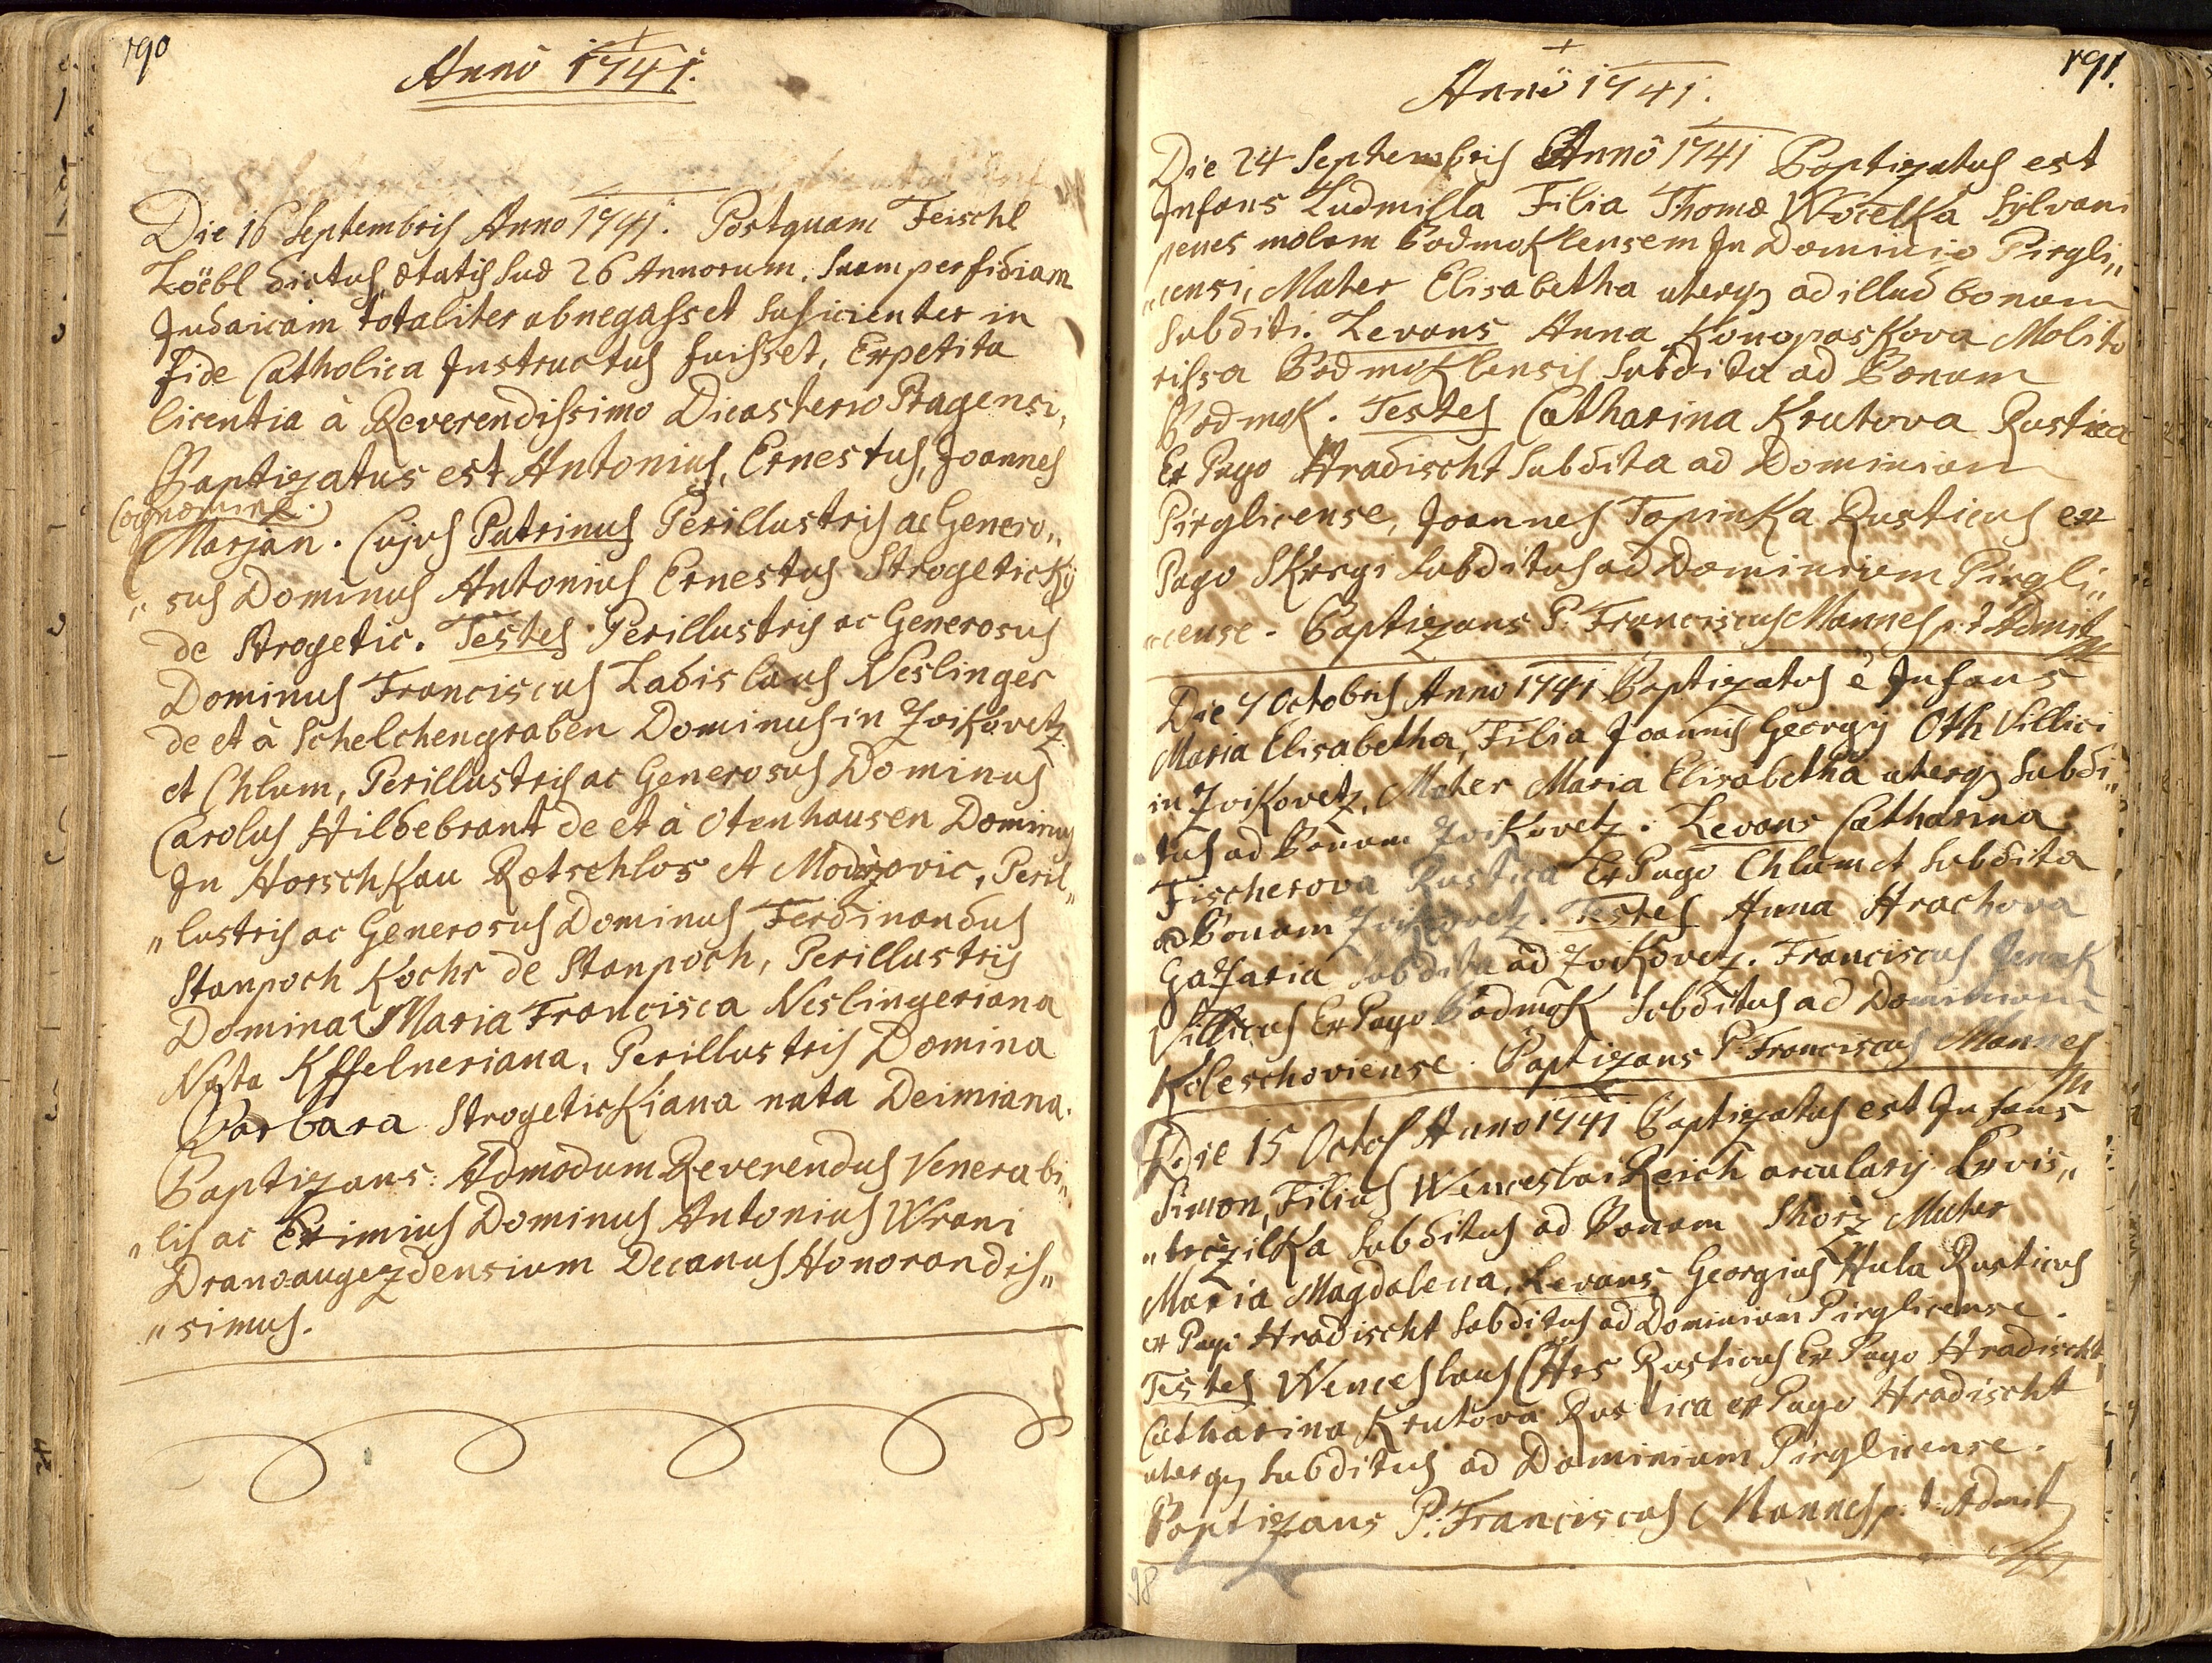 190
Anno 1741.
Die 16 Septembris Anno 1741. Postquam Feischl
Löebl dictus, ætatis suæ 26 Annorum. Suam perfidiam
Judaicam totaliter abnegasset suficienter in
fide Catholica Instructus fuisset, Expetita
licentia à Reverendissimo Dicasterio Pragensi,
Baptizatus est Antonius, Ernestus, Joannes
Cognomine
Marjan. Cujus Patrinus Perillustris ac Genero„
„sus Dominus Antonius Ernestus Strogetickÿ
de Strogetic. Testes Perillustris ac Generosus
Dominus Franciscus Ladislaus Neslinger
de et à Schelchengraben Dominus in Zvikovetz
et Chlum, Perillustris ac Generosus Dominus
Carolus Hildebrant de et à Otenhausen Dominus
In Horschkau Rotschlos et Modrzovic, Peril„
„lustris ac Generosus Dominus Ferdinandus
Stanpoch Kochr de Stanpoch, Perillustris
Domina Maria Francisca Neslingeriana
Nata Kffelneriana, Perillustris Domina
Barbara Strogetickiana nata Deimiana.
Baptizans: Admodum Reverendus Venerabi„
„lis ac Eximius Dominus Antonius Wrani
Dranoaugezdensium Decanus Honorandis„
„simus.
191.
Anno 1741.
Die 24 Septembris Anno 1741 Baptizatus est
Infans Ludmilla Filia Thomæ Wocelka Sylvani
penes molam Podmoklensem In Dominio Pirgli„
„censi, Mater Elisabetha uterq ad illud bonum
subditi. Levans Anna Konopaskova Molito
rissa Podmoklensis Subdita ad Bonum
Podmok. Testes Catharina Krutova Rustica
Ex Pago Hradischt Subdita ad Dominium
Pirglicense, Joannes Topinka Rusticus ex
Pago Skregi subditus ad Dominium Pirgli„
„cense. Baptizans P. Franciscus Mannes p.t. Admit
Die 7 Octobris Anno 1741 Baptizatus e Infans
Maria Elisabetha, Filia Joannis Georgÿ Oth Villici
in Zvikovetz, Mater Maria Elisabetha uterq subdi„
tus ad Bonum Zvikovetz. Levans Catharina
Fischerova Rustica Ex Pago Chlum et Subdita
ad Bonum Zvikovetz. Testes Anna Hrachova
Gazaria subdita ad Zvikovetz. Franciscus Jenak
Villicus Ex Pago Podmok Subditus ad Dominium
Koleschoviense. Baptizans P. Franciscus Mannes
Die 15 Octob Anno 1741 Baptizatus est Infans
Simon, Filius Wenceslai Reich arcularÿ Ex vis„
„brczilka Subditus ad Bonum Shorz Mater
Maria Magdalena, Levans Georgius Hula Rusticus
ex Pagi Hradischt Subditus ad Dominium Pirglicense.
Testes Wenceslaus Rusticus Ex Pago Hradischt
Catharina Krutova Rustica ex Pago Hradischt
uterq Subditus ad Dominium Pirglicense.
Baptizans P. Franciscus Mannes p. t. Admit
98